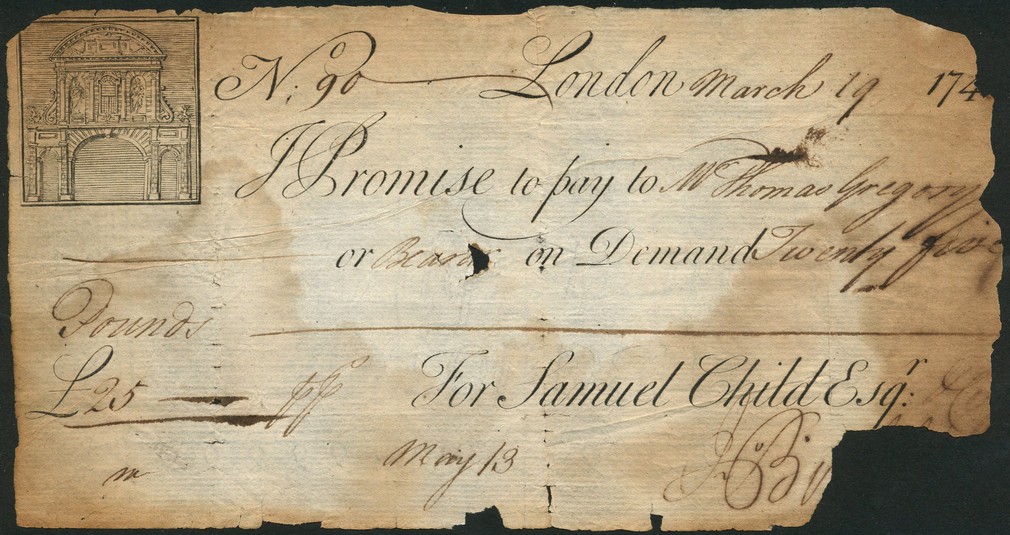 No: 90 London March 19 174
I Promise to pay to Mr Thomas Gregory
or Bearer on Demand Twenty five
Pounds
£25 For Samuel Child Esqr: & C
May 13